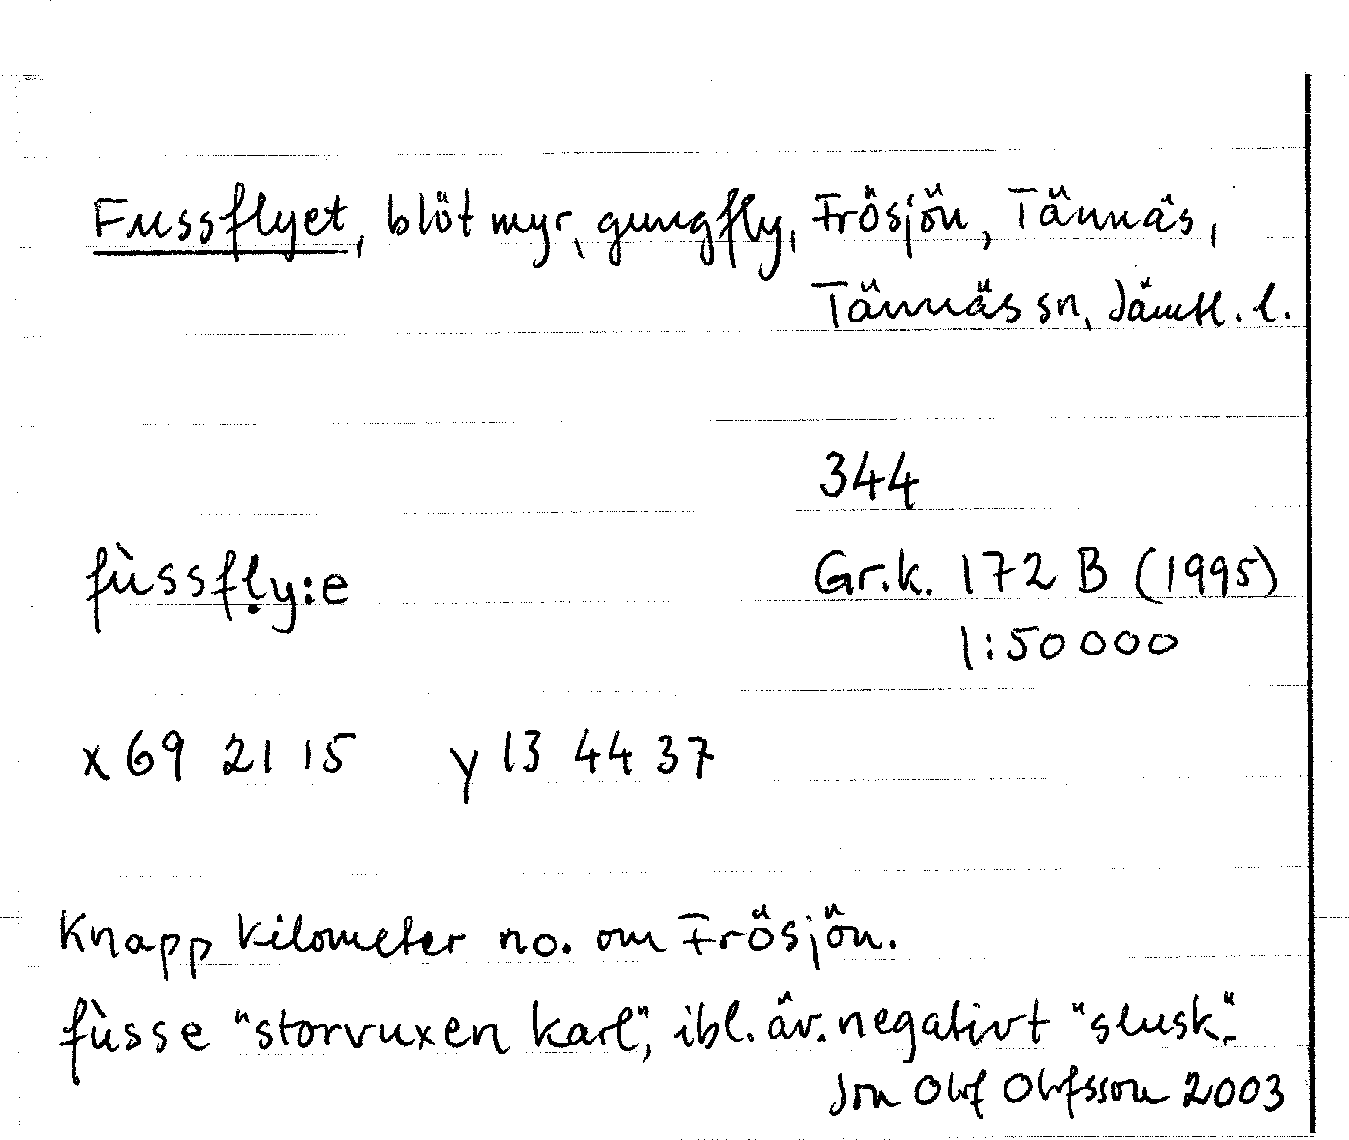 Fussflyet, blöt myr, gungfly, Frösjön, Tännäs,
Tännäs sn, Jämtl. l.
344
fùssfḷy:e Gr.k. 172 B (1995)
1:50 000
x 69 21 15 y 13 44 37
Knapp kilometer no. om Frösjön.
fùsse "storvuxen karl", ibl. äv. negativt "slusk".
Jon Olof Olofsson 2003